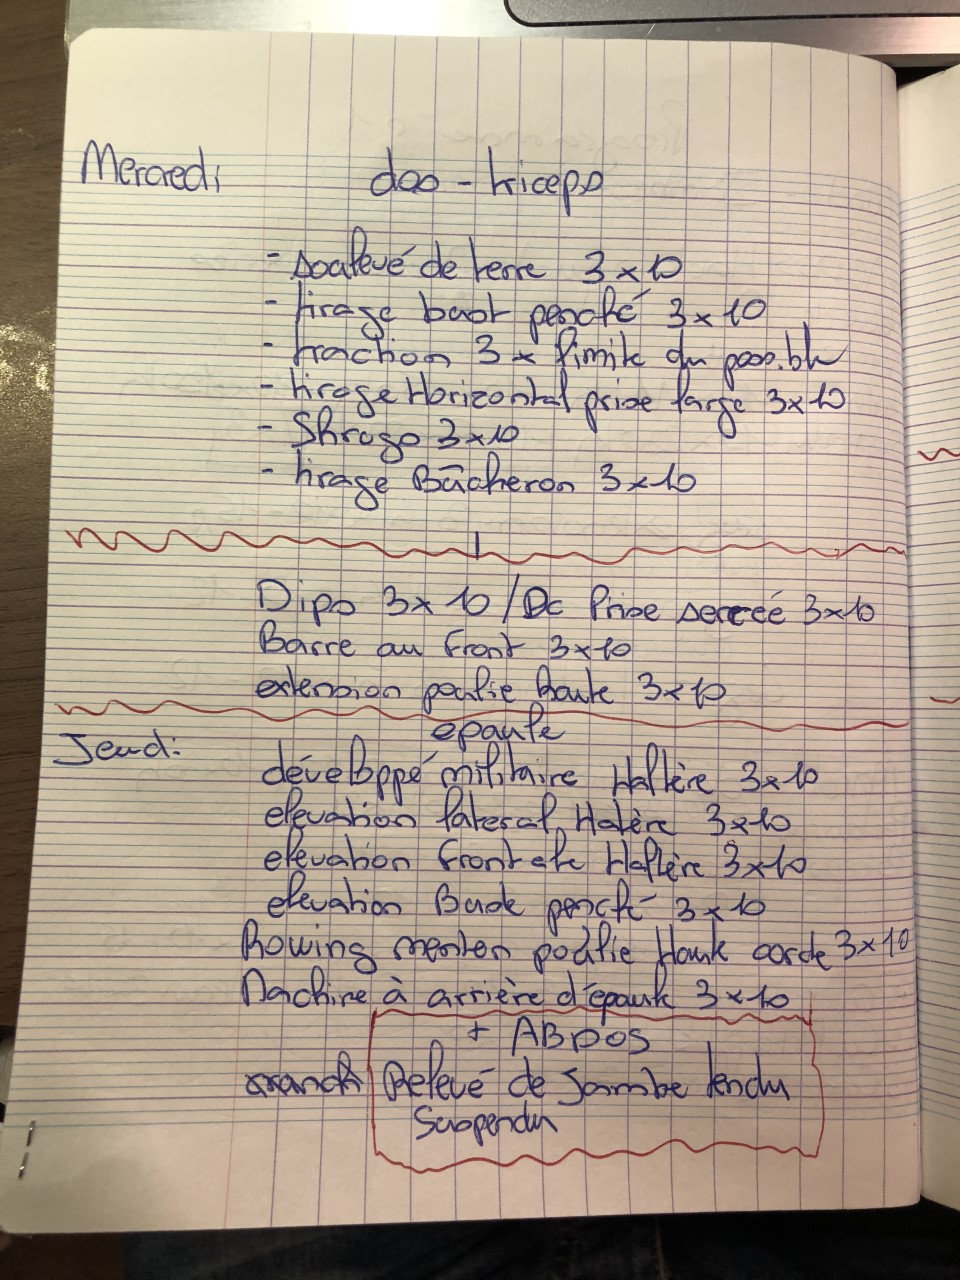 Mercredi dos - triceps
- soulevé de terre 3 x 10
- tirage bust penché 3 x 10
- traction 3 x limite du possible
- tirage Horizontal prise large 3x10
- Shrugs 3x10
- tirage Bûcheron 3 x 10
Dips 3 x 10 / DC Prise serrée 3x10
Barre au Front 3x10
extension poulie haute 3x10
epaule
Jeudi
développé militaire Haltère 3x10
elevation lateral Haltère 3x10
elevation Frontale Haltère 3x10
elevation Buste penché 3 x 10
Rowing menton poulie Haute corde 3x10
Machine à arrière d'épaule 3x10
+ ABDOS
Relevé de Jambe tendu
Suspendu